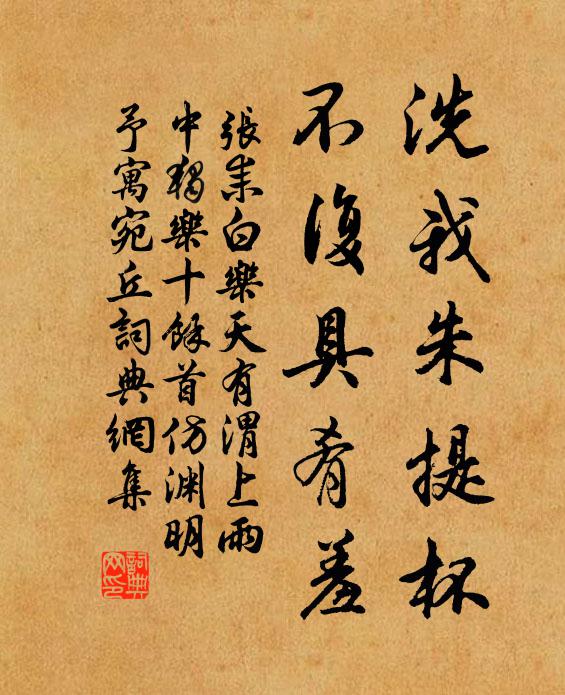 洗我朱提杯
不復具肴羞
張耒白樂天有渭上雨
中獨樂十餘首仿淵明
予寓宛丘詞典網集
詞典
网印